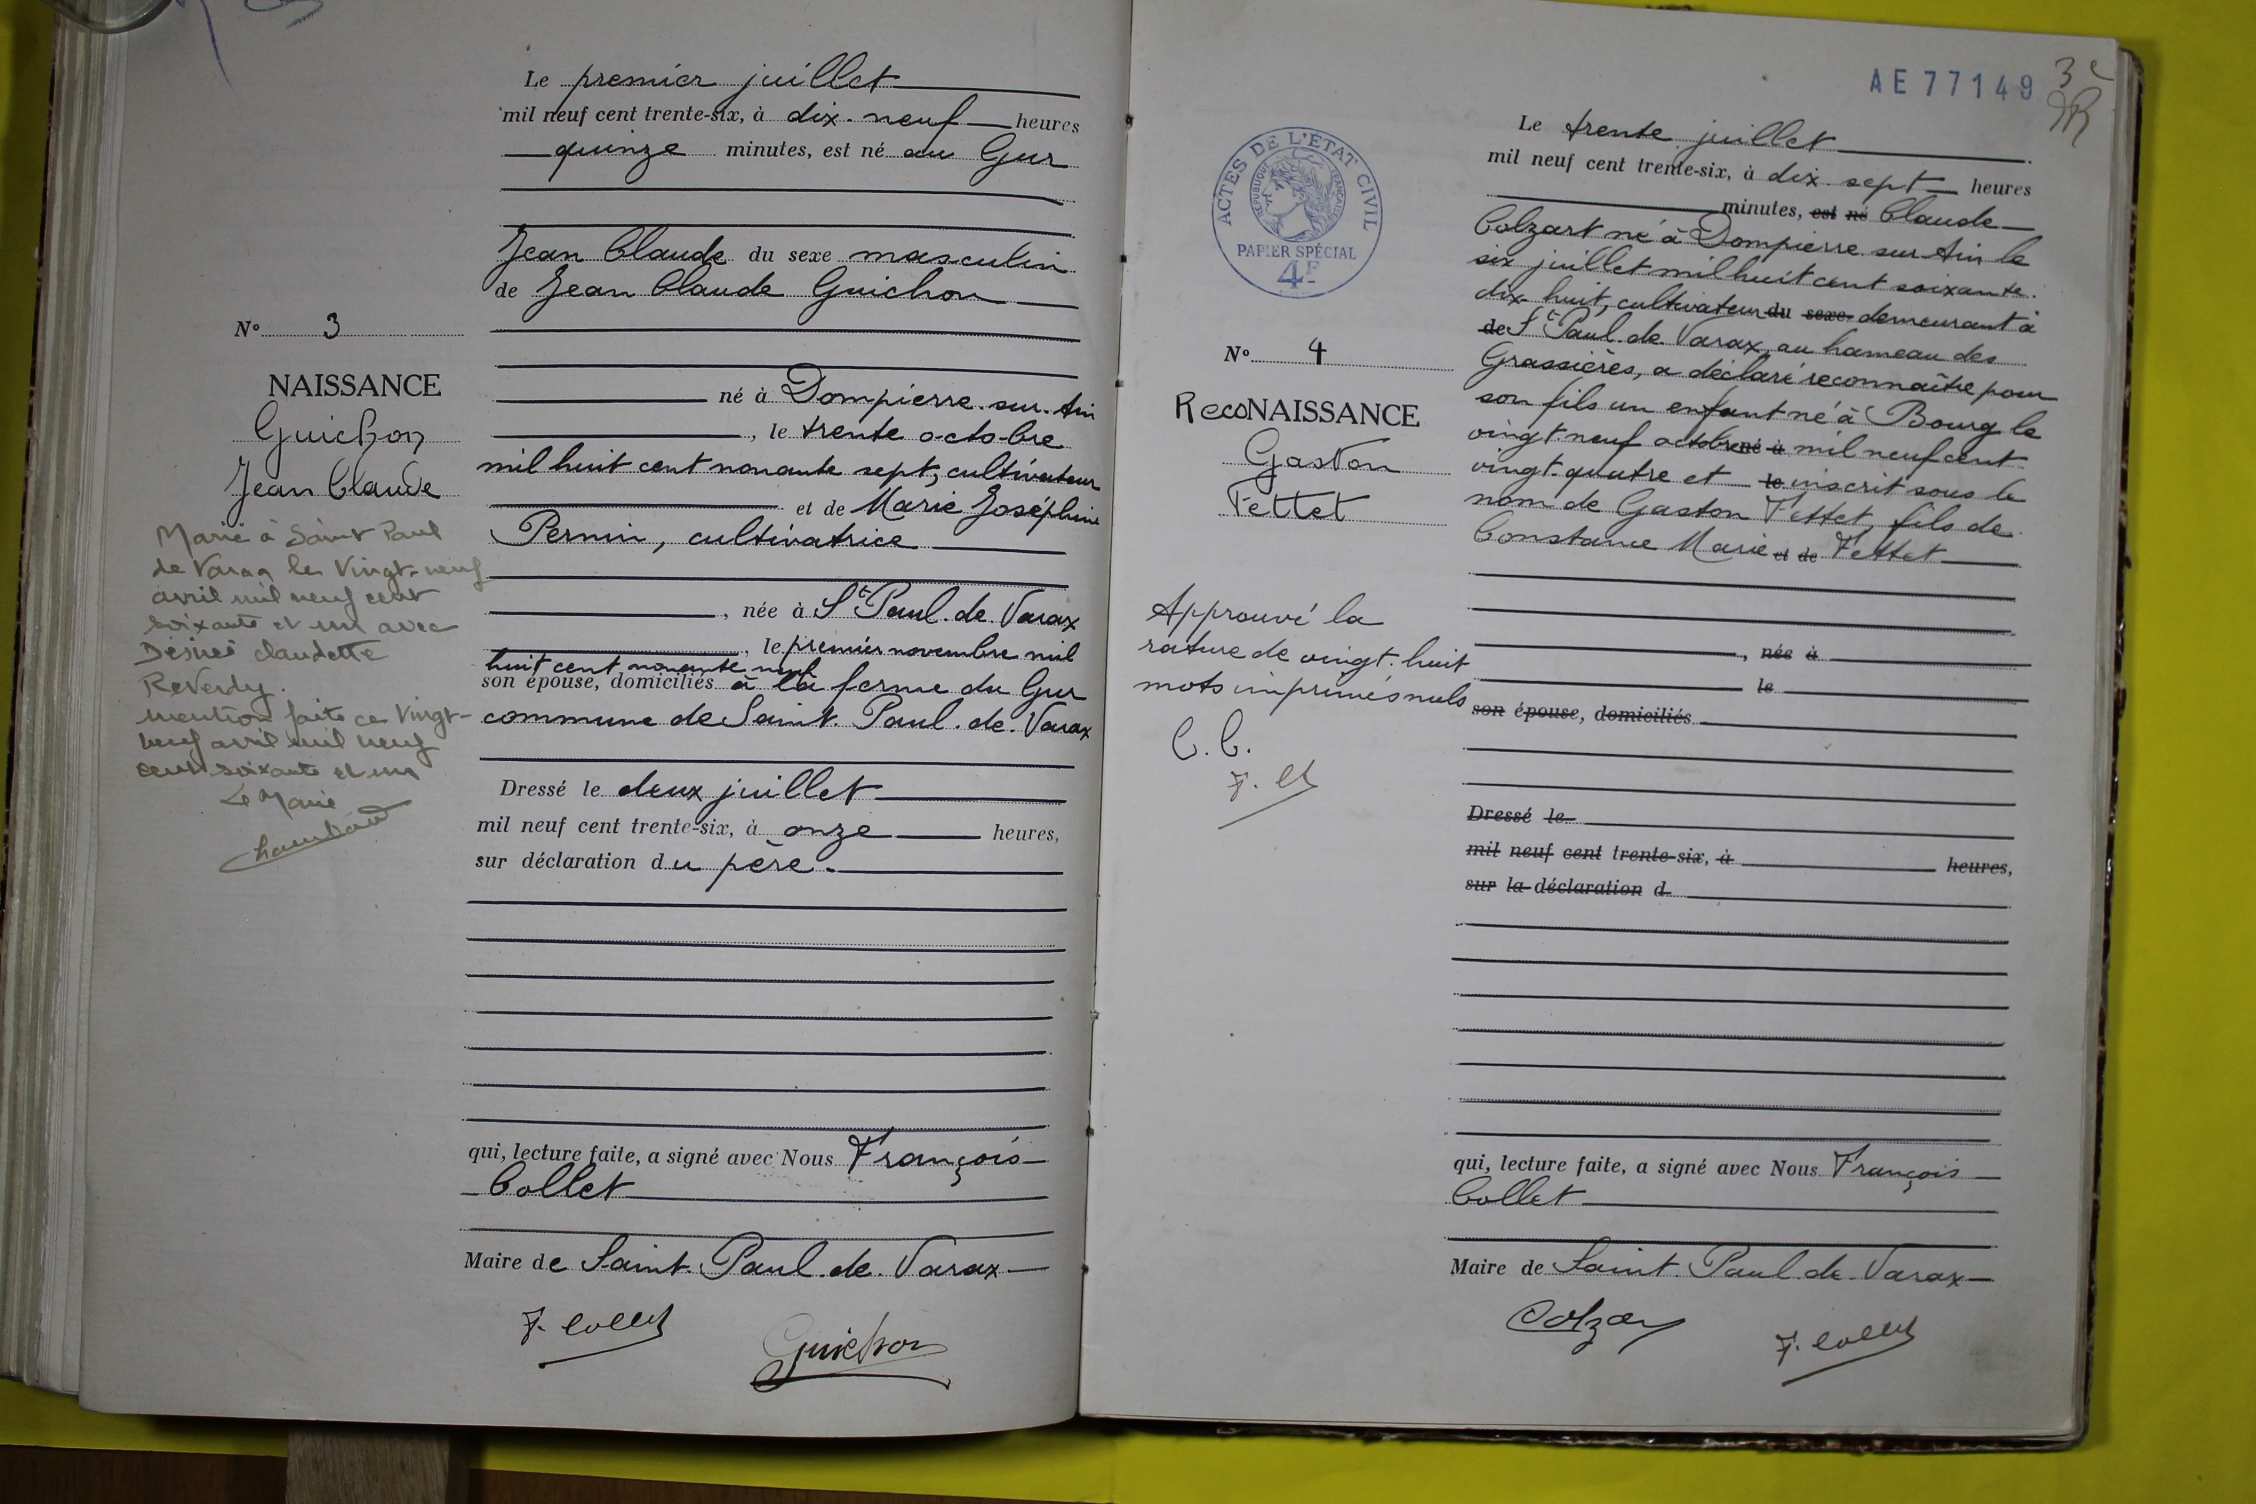 Le premier juillet
mil neuf cent trente-six, à dix-neuf heures
quinze minutes, est né au Gur
Jean Claude du sexe masculin
de Jean Claude Guichon
né à Dompierre-sur-Ain
, le trente octobre
mil huit cent nonante sept, cultivateur
et de Marie Joséphine
Pernin, cultivatrice
, née à St Paul-de-Varax
, le premier novembre mil
huit cent nonante neuf
son épouse, domiciliés à la ferme du Gur
commune de Saint-Paul-de-Varax
Dressé le deux juillet
mil neuf cent trente-six, à onze heures,
sur déclaration du père.
qui, lecture faite, a signé avec Nous François
Collet
Maire de Saint-Paul-de-Varax
F. Collet
Guichon
No 3
NAISSANCE
Guichon
Jean Claude
Marié à Saint Paul
de Varax le Vingt-neuf
avril mil neuf cent
soixante et un avec
Claudette
Reverdy.
mention faite ce Vingt-
neuf avril mil neuf
cent soixante et un
Le Maire
AE77149
3e
ACTES DE L'ÉTAT CIVIL
RÉPUBLIQUE FRANÇAISE
PAPIER SPÉCIAL
4F
No 4
RecoNAISSANCE
Gaston
Fettet
Approuvé la
rature de vingt-huit
mots imprimés nuls
C. C.
Le trente juillet
mil neuf cent trente-six, à dix-sept heures
minutes, est né Claude
Colzart né à Dompierre sur Ain le
six juillet mil huit cent soixante-
dix-huit, cultivateur du sexe demeurant à
de St Paul-de-Varax, au hameau des
Grassières, a déclaré reconnaître pour
son fils un enfant né à Bourg le
vingt-neuf octobre né à mil neuf cent
vingt-quatre et le inscrit sous le
nom de Gaston Fettet, fils de
Constance Marie et de Fettet
, née à
le
son épouse, domiciliés
Dressé le
mil neuf cent trente-six, à heures,
sur la déclaration d
qui, lecture faite, a signé avec Nous François
Collet
Maire de Saint-Paul-de-Varax
F. Collet